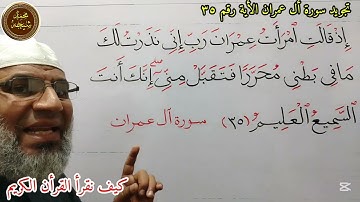 تجويد سورة آل عمران الآية رقم ٣٥
إِذْ قَالَتِ امْرَأَتُ عِمْرَانَ رَبِّ إِنِّي نَذَرْتُ لَكَ
مَا فِي بَطْنِي مُحَرَّرًا فَتَقَبَّلْ مِنِّي إِنَّكَ أَنتَ
السَّمِيعُ الْعَلِيمُ (٣٥) سورة آل عمران
كيف نقرأ القرآن الكريم